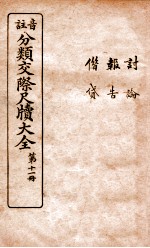 討論
報告
借貸
音註
分類交際尺牘大全
第十一冊